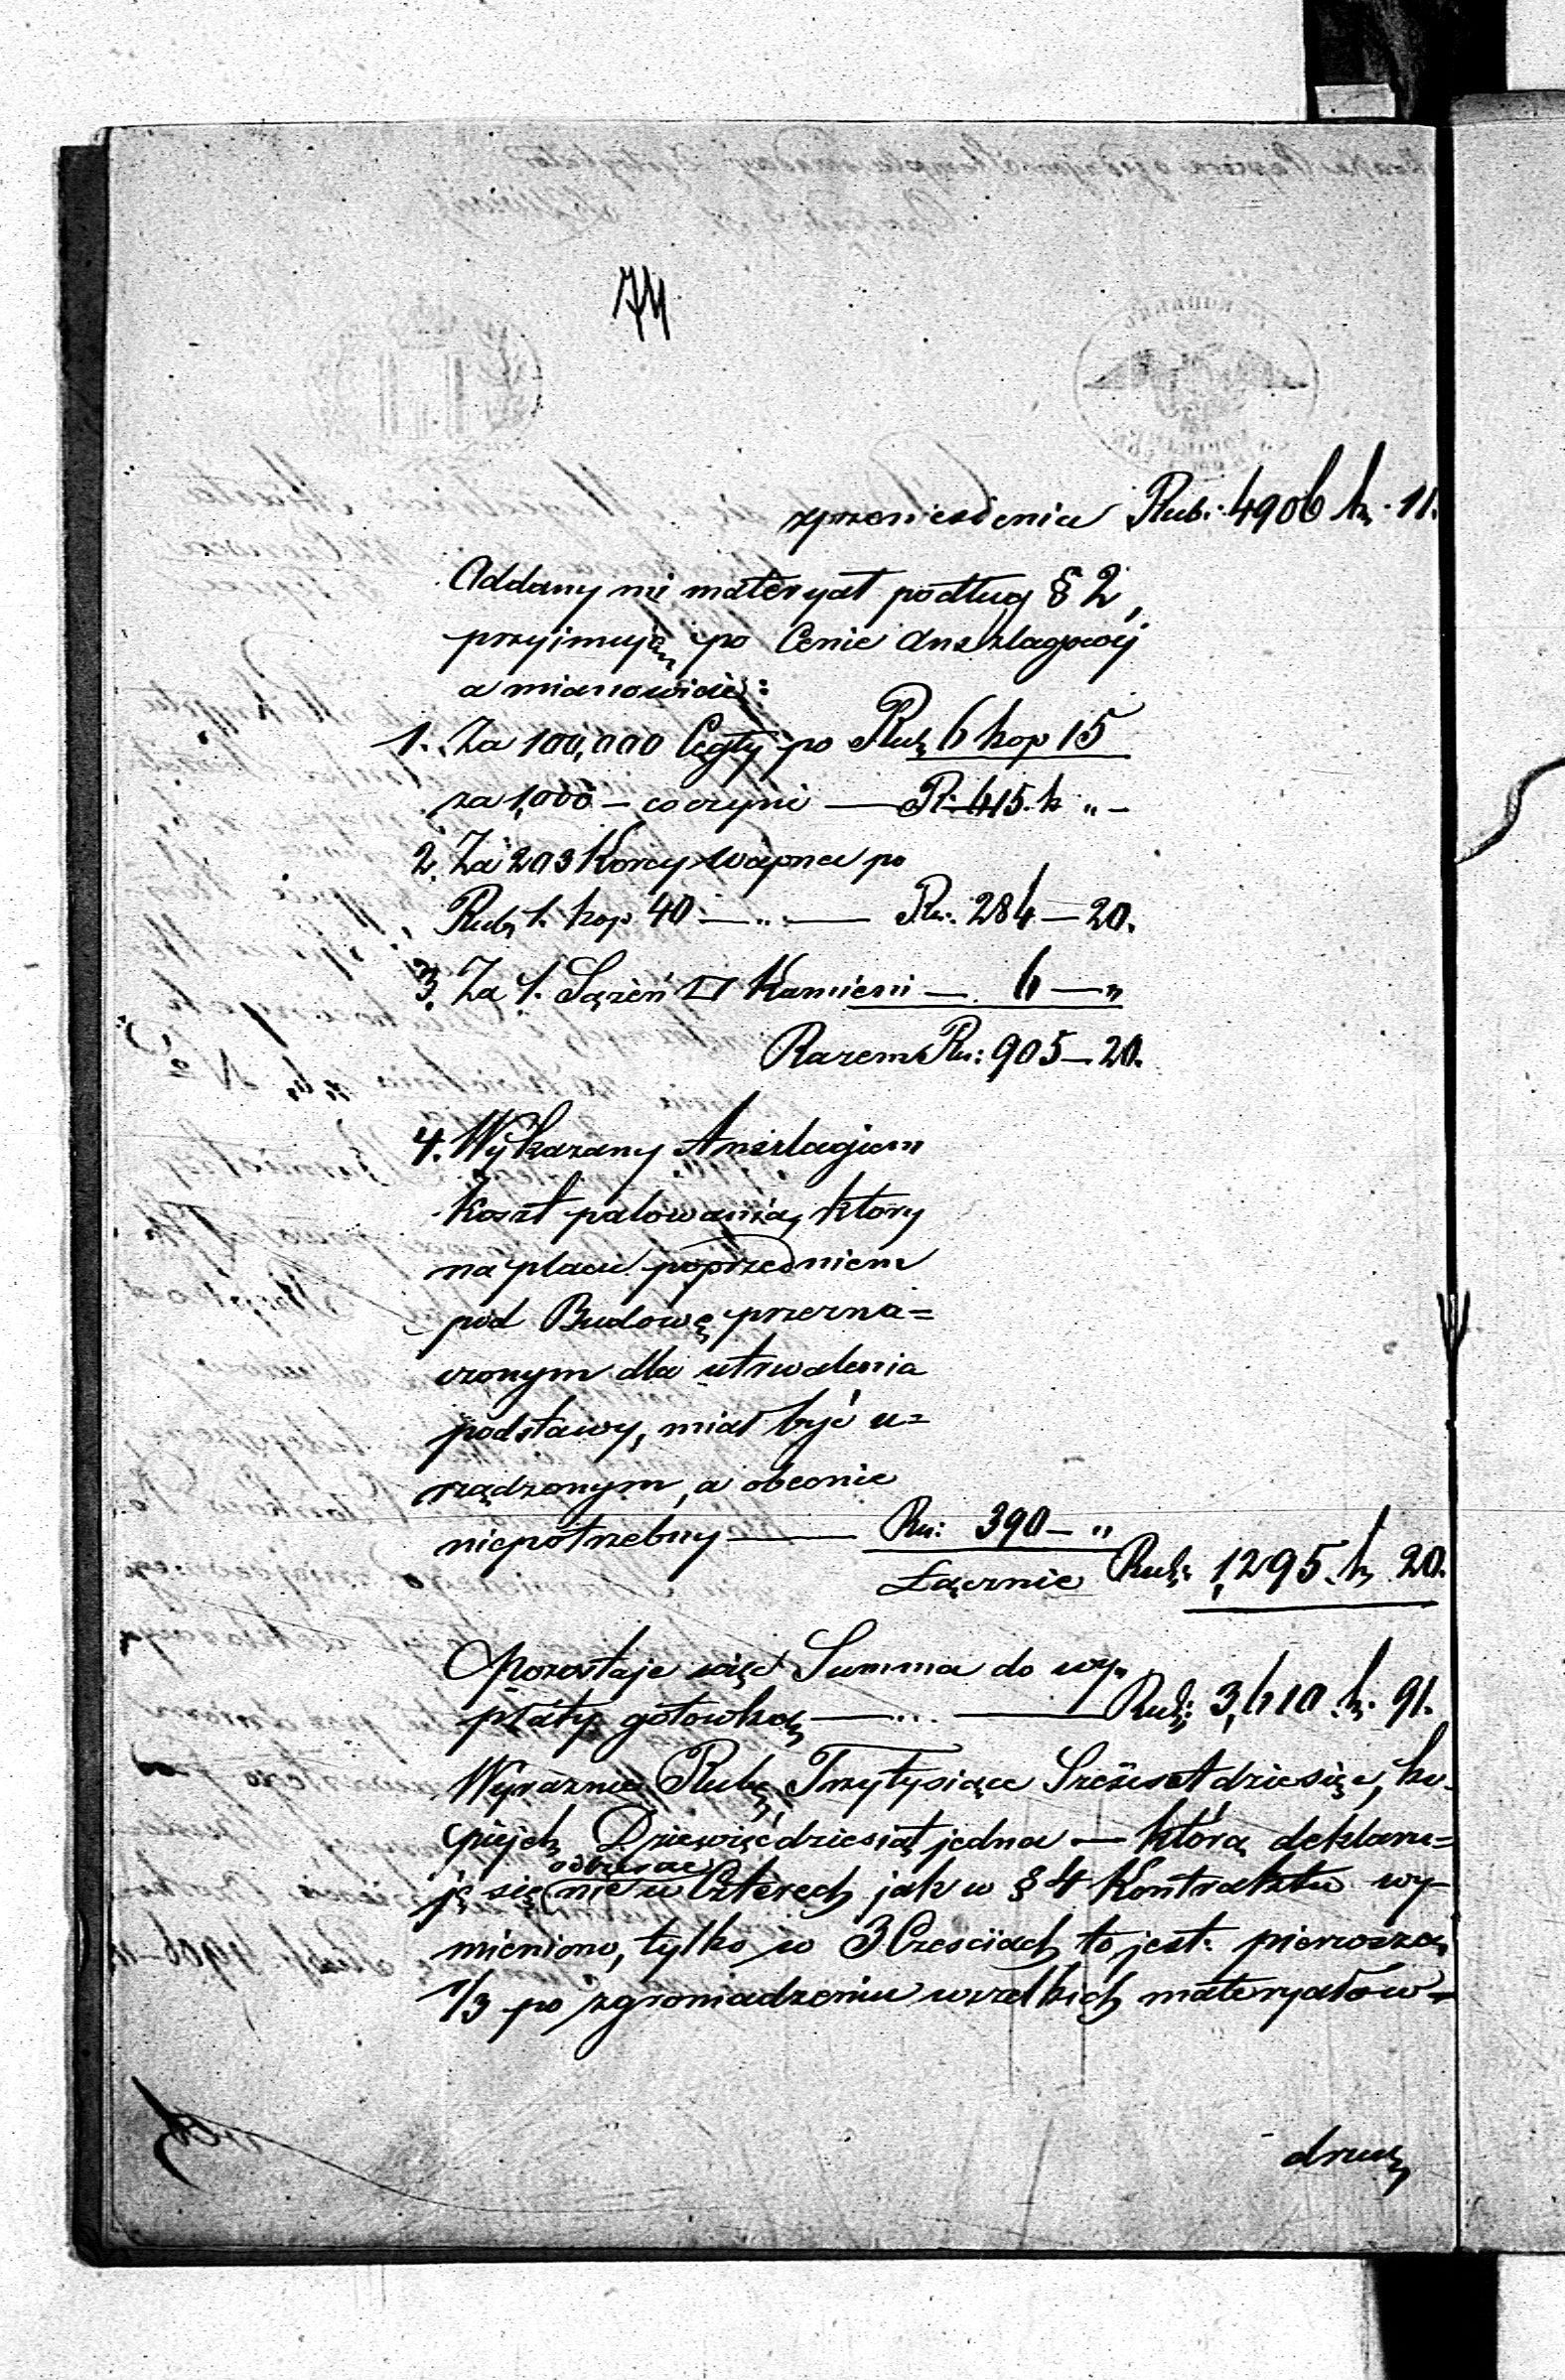 74
zprzeniesienia Rub: 4906 k. 11.
Oddany mi materyał podług § 2,
przyjmuję po Cenie Anszlagowéj
a mianowicie:
1. Za 100,000 Cegły po Rub. 6 kop 15
za 1,000 – co czyni — R: 615. k „ –
2. Za 203 Korcy Wapna po
Rub. 1. kop. 40 — „ — Ru: 284 — 20.
3. Za 1. Sążeń □ Kamieni — 6 — „
Razem Ru: 905 — 20.
4. Wykazany Anszlagiem
koszt palowania, który
na placu poprzedniem
pod Budowę przezna=
czonym dla utrwalenia
podstawy, miał być u=
rządzonym, a obecnie
niepotrzebny — Ru: 390 — „
Łącznie Rub: 1,295. k. 20.
Pozostaje więc Summa do wy=
płaty gotowką — ... — Rub: 3,610. k. 91.
Wyraźnie Rubli Trzytysiące Sześćset dziesięć, ko=
piejek Dziewięćdziesiąt jedna — którą deklaru=
odbierać
ję się nie w Czterech jak w § 4 Kontraktu wy=
mieniono, tylko w 3 Czesciach to jest: pierwszą
1/3 po zgromadzeniu wszelkich materyałow –
drugą